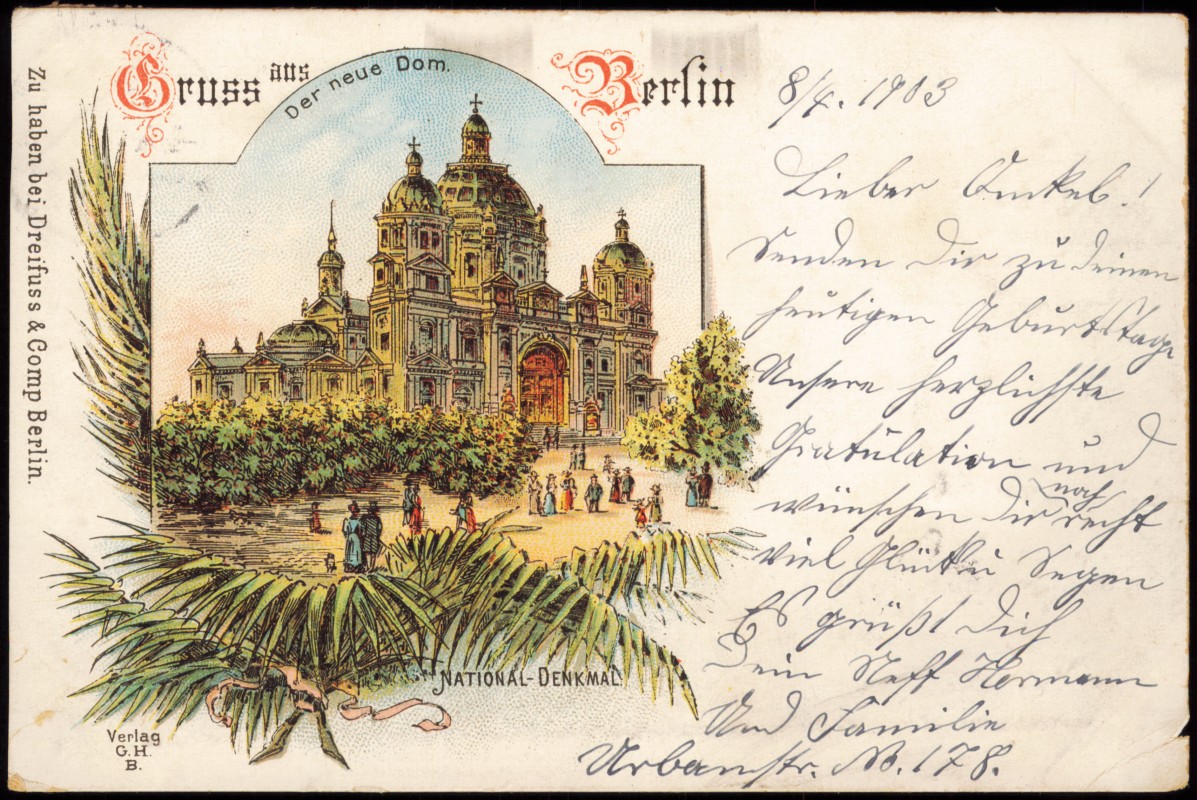 Gruss aus Berlin
Der neue Dom.
Zu haben bei Dreifuss & Comp Berlin.
NATIONAL-DENKMAL.
Verlag
G. H.
B.
8/4. 1903
Lieber Onkel!
Senden Dir zu deinen
heutigen Geburtstage
Unsere herzlichste
Gratulation und
wünschen Dir noch recht
viel Glück u Segen
Es grüßt Dich
Dein Neff Hermann
Und Familie
Urbanstr. No. 178.